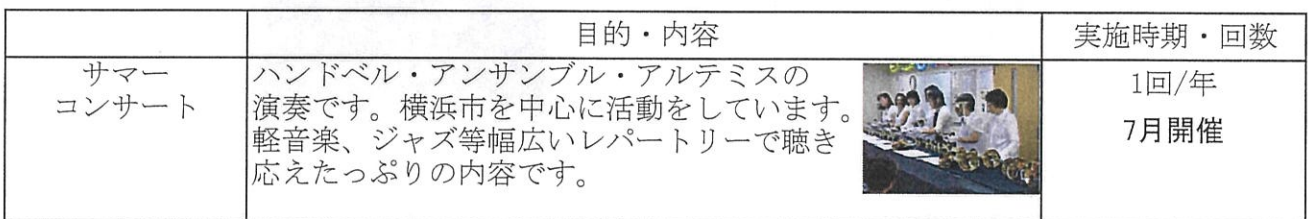 目的・内容
実施時期・回数
サマー
コンサート
ハンドベル・アンサンブル・アルテミスの
演奏です。横浜市を中心に活動をしています。
軽音楽、ジャズ等幅広いレパートリーで聴き
応えたっぷりの内容です。
1回/年
7月開催